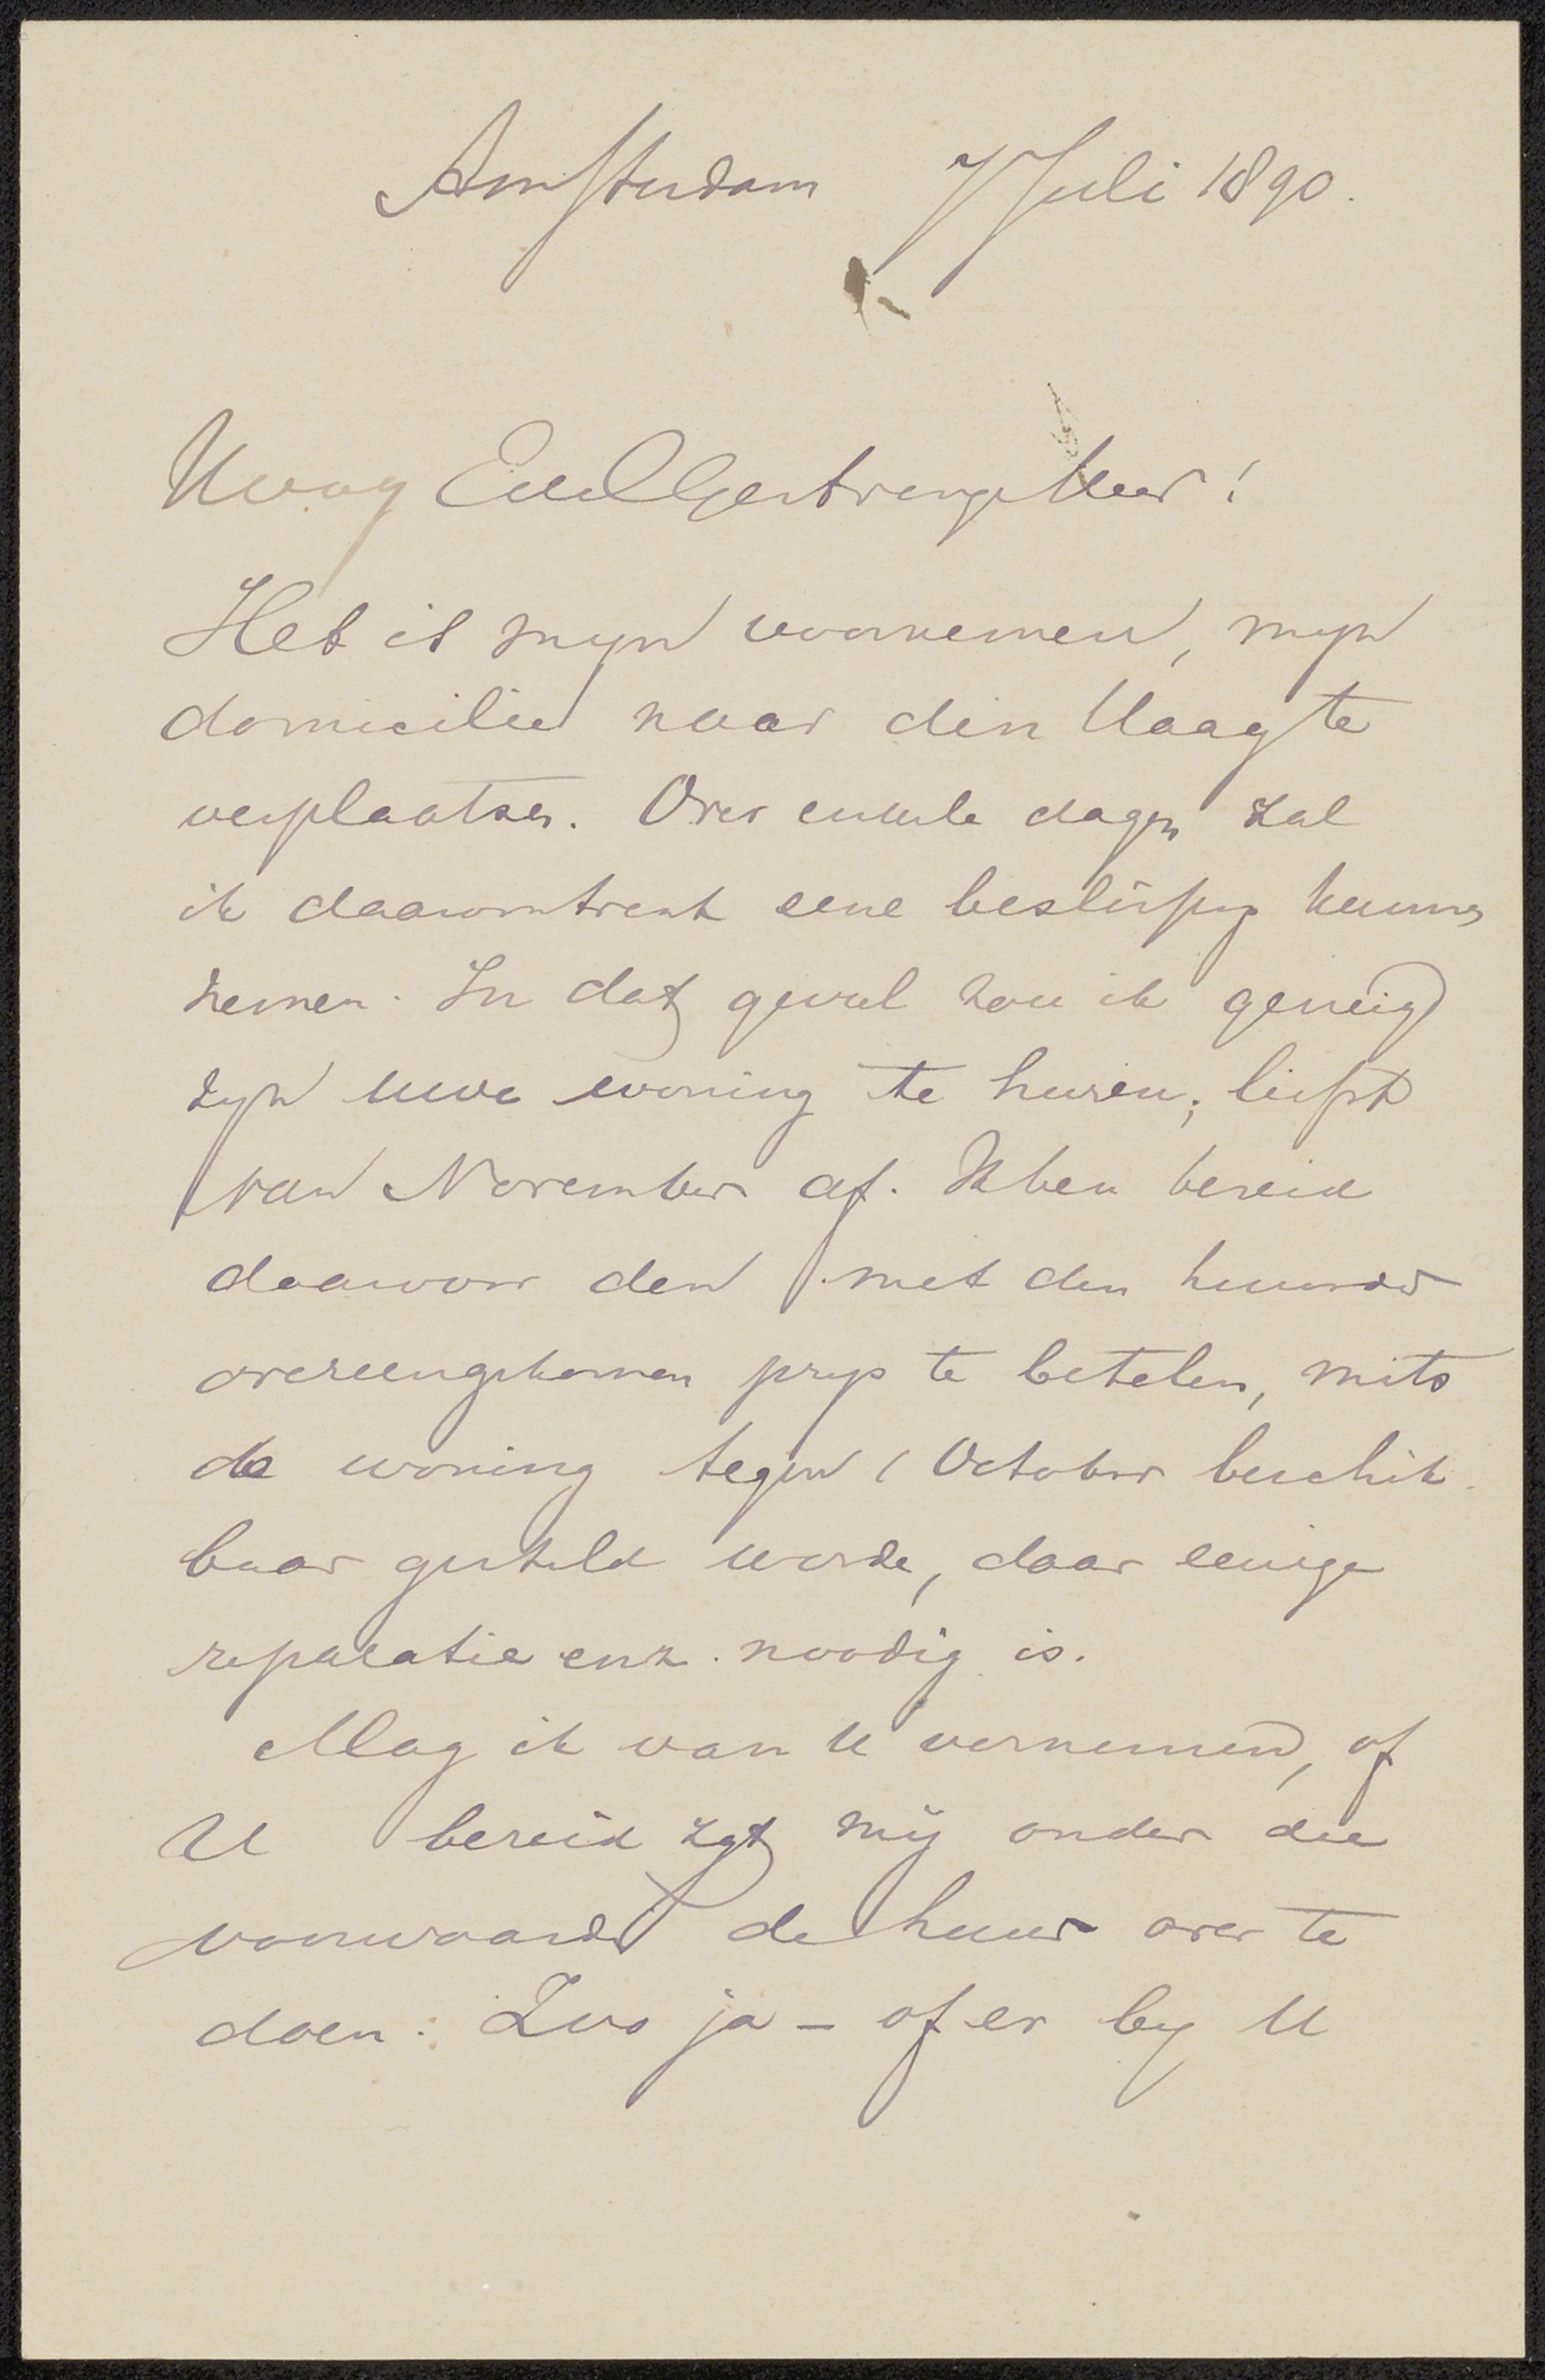 Amsterdam 7 Juli 1890.
Hoog EdelGestrenge Heer!
Het is mijn voornemen, mijn
domicilie naar den Haag te
verplaatsen. Over enkele dagen zal
ik daaromtrent eene beslissing kunnen
nemen. In dat geval zou ik geneigd
zijn uwe woning te huren; liefst
van November af. Ik ben bereid
daarvoor den met den huurder
overeengekomen prijs te betalen, mits
de woning tegen 1 October beschik
baar gesteld worde, daar eenige
reparatie enz. noodig is.
Mag ik van U vernemen, of
U bereid zijt mij onder die
voorwaarde de huur over te
doen. Zoo ja – of er bij U